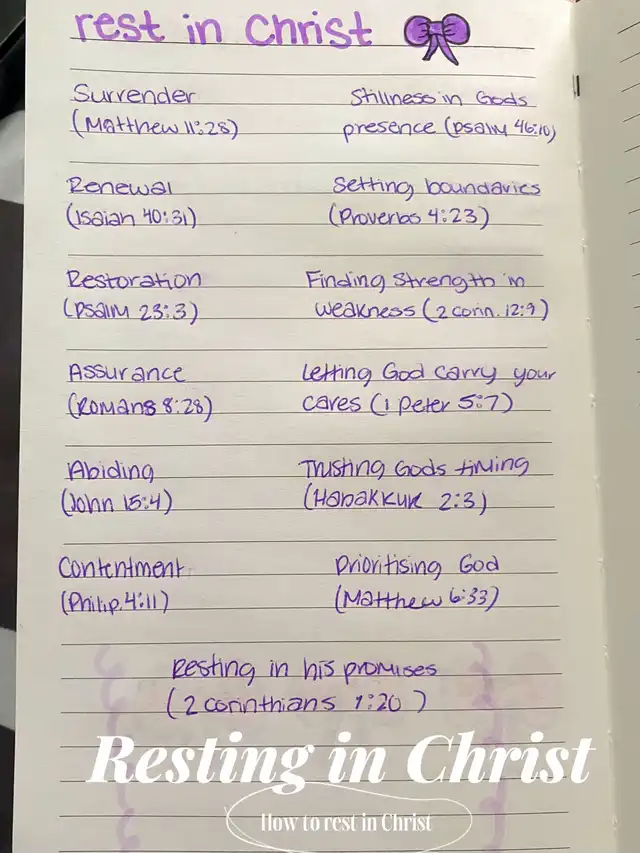 rest in Christ
Surrender
(Matthew 11:28)
Stillness in Gods
presence (psalm 46:10)
Renewal
(Isaiah 40:31)
Setting boundaries
(Proverbs 4:23)
Restoration
(psalm 23:3)
Finding strength in
weakness (2 corin. 12:9)
Assurance
(Romans 8:28)
Letting God carry your
cares (1 peter 5:7)
Abiding
(John 15:4)
Trusting Gods timing
(Habakkuk 2:3)
Contentment
(Philip. 4:11)
Prioritising God
(Matthew 6:33)
Resting in his promises
(2 corinthians 1:20)
Resting in Christ
How to rest in Christ